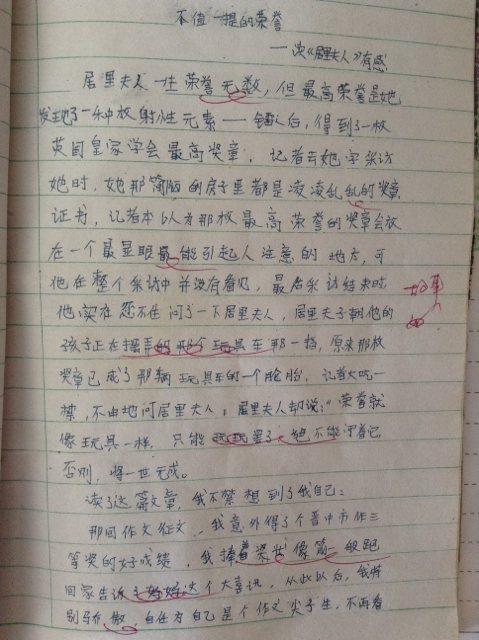 不值一提的荣誉
——次《居里夫人》有感
居里夫人一生荣誉无数，但最高荣誉是她
发现了一种放射性元素——镭之后，得到了一枚
英国皇家学会最高奖章，记者去她家采访
她时，她那简陋的房子里都是凌凌乱乱的奖章
证书，记者本以为那枚最高荣誉的奖章会放
在一个最显眼最能引起人注意的地方，可
他在整个采访中并没有看见，最后采访结束时
他实在忍不住问了一下居里夫人，居里夫子朝他的
孩子正在摆弄的那个玩具车那一指，原来那枚
奖章已成了那辆玩具车的一个轮胎，记者大吃一
惊，不由地问居里夫人；居里夫人却说：“荣誉就
像玩具一样，只能玩玩罢了，绝不能守着它
否则，将一世无成。
读了这篇文章，我不禁想到了我自己：
那回作文征文，我意外得了个晋中市作三
等奖的好成绩，我捧着奖状像箭一般跑
回家告诉了妈妈这个大喜讯，从此以后，我将
自任为自己是个作文尖子生，不再看